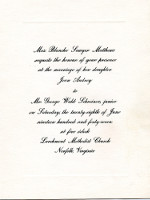 Mrs. Blanche Sawyer Matthews
requests the honour of your presence
at the marriage of her daughter
Jean Audrey
to
Mr. George Webb Schwieren, junior
on Saturday, the twenty-eighth of June
nineteen hundred and forty-seven
at five o'clock
Larchmont Methodist Church
Norfolk, Virginia